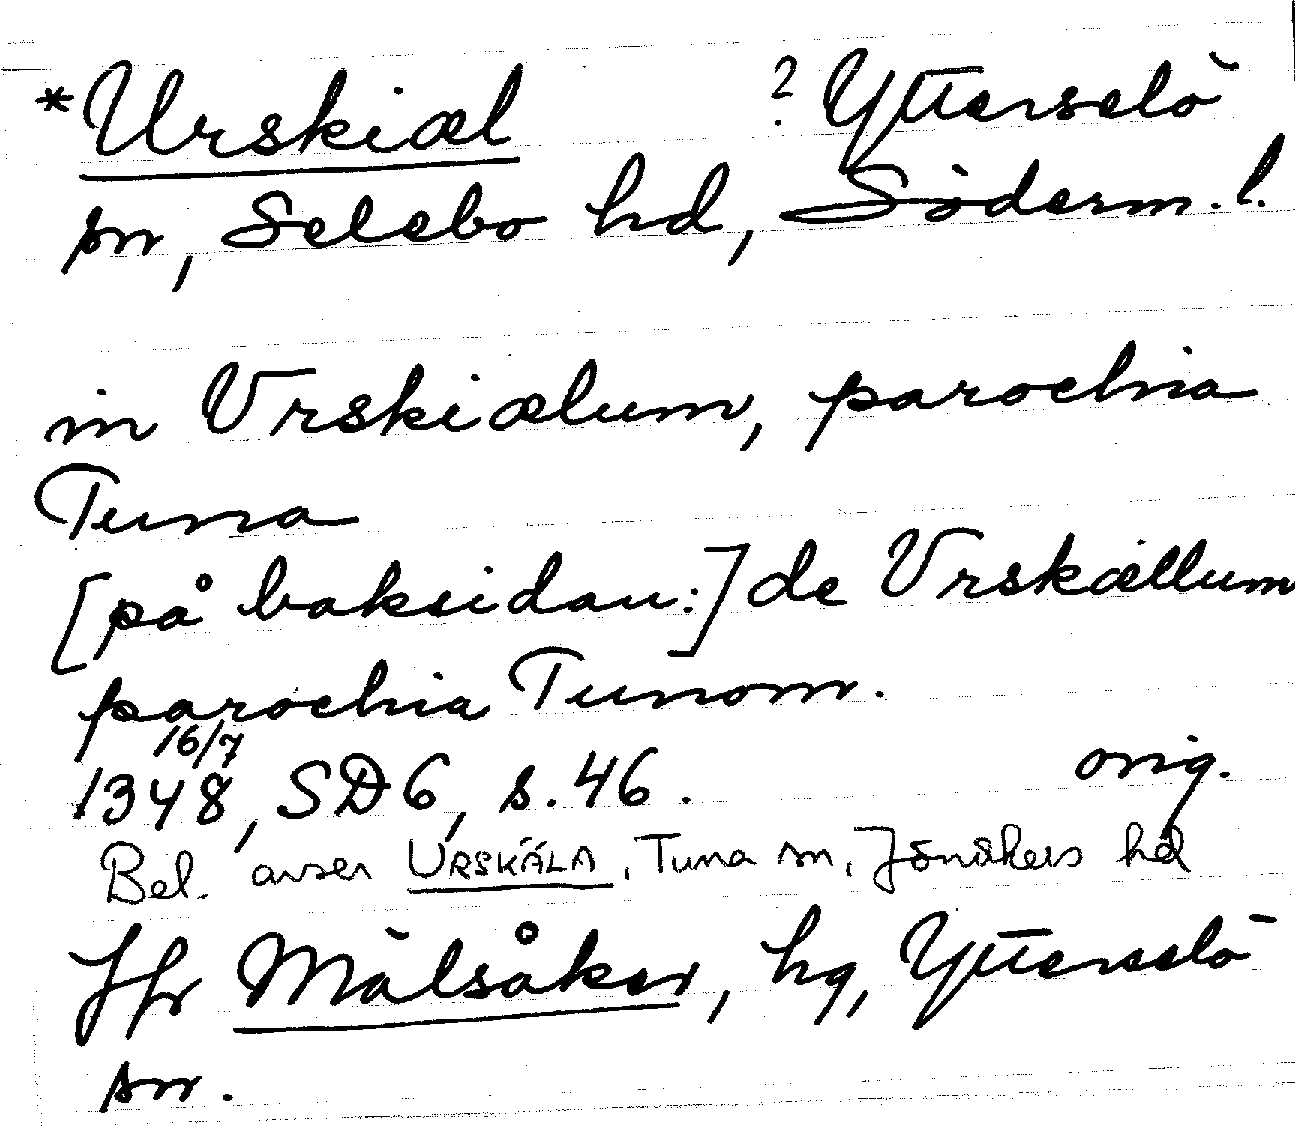 *Urskiæl ? Ytterselö
sn, Selebo hd, Söderm. l.
in Vrskiælum, parochia
Tuna
[på baksidan:] de Vrskællum
parochia Tunom.
16/7
1348, SD 6, s. 46. orig.
Bel. avser URSKÄLA, Tuna sn, Jönåkers hd
Jfr Mälsåker, hg, Ytterselö
sn.